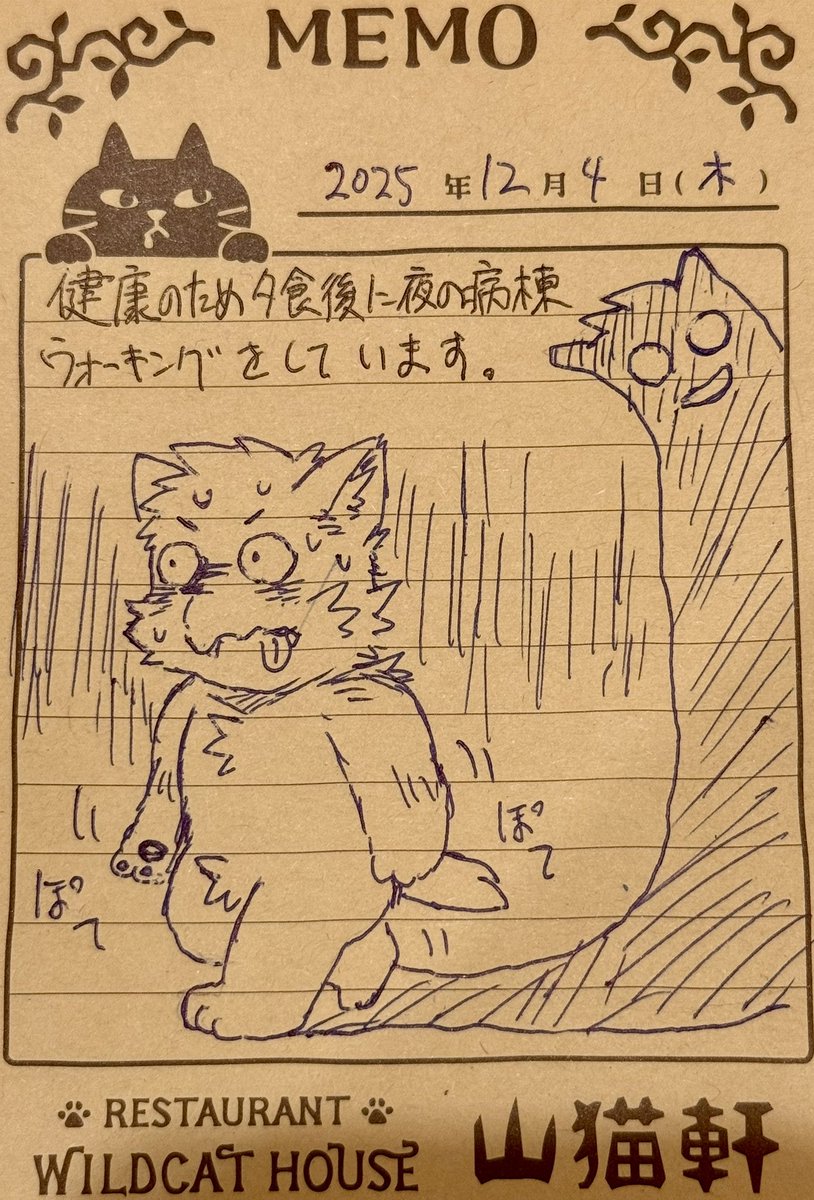 MEMO
2025年12月4日(木)
健康のため夕食後に夜の病棟
ウォーキングをしています。
ぽて
ぽて
RESTAURANT
WILDCAT HOUSE
山猫軒